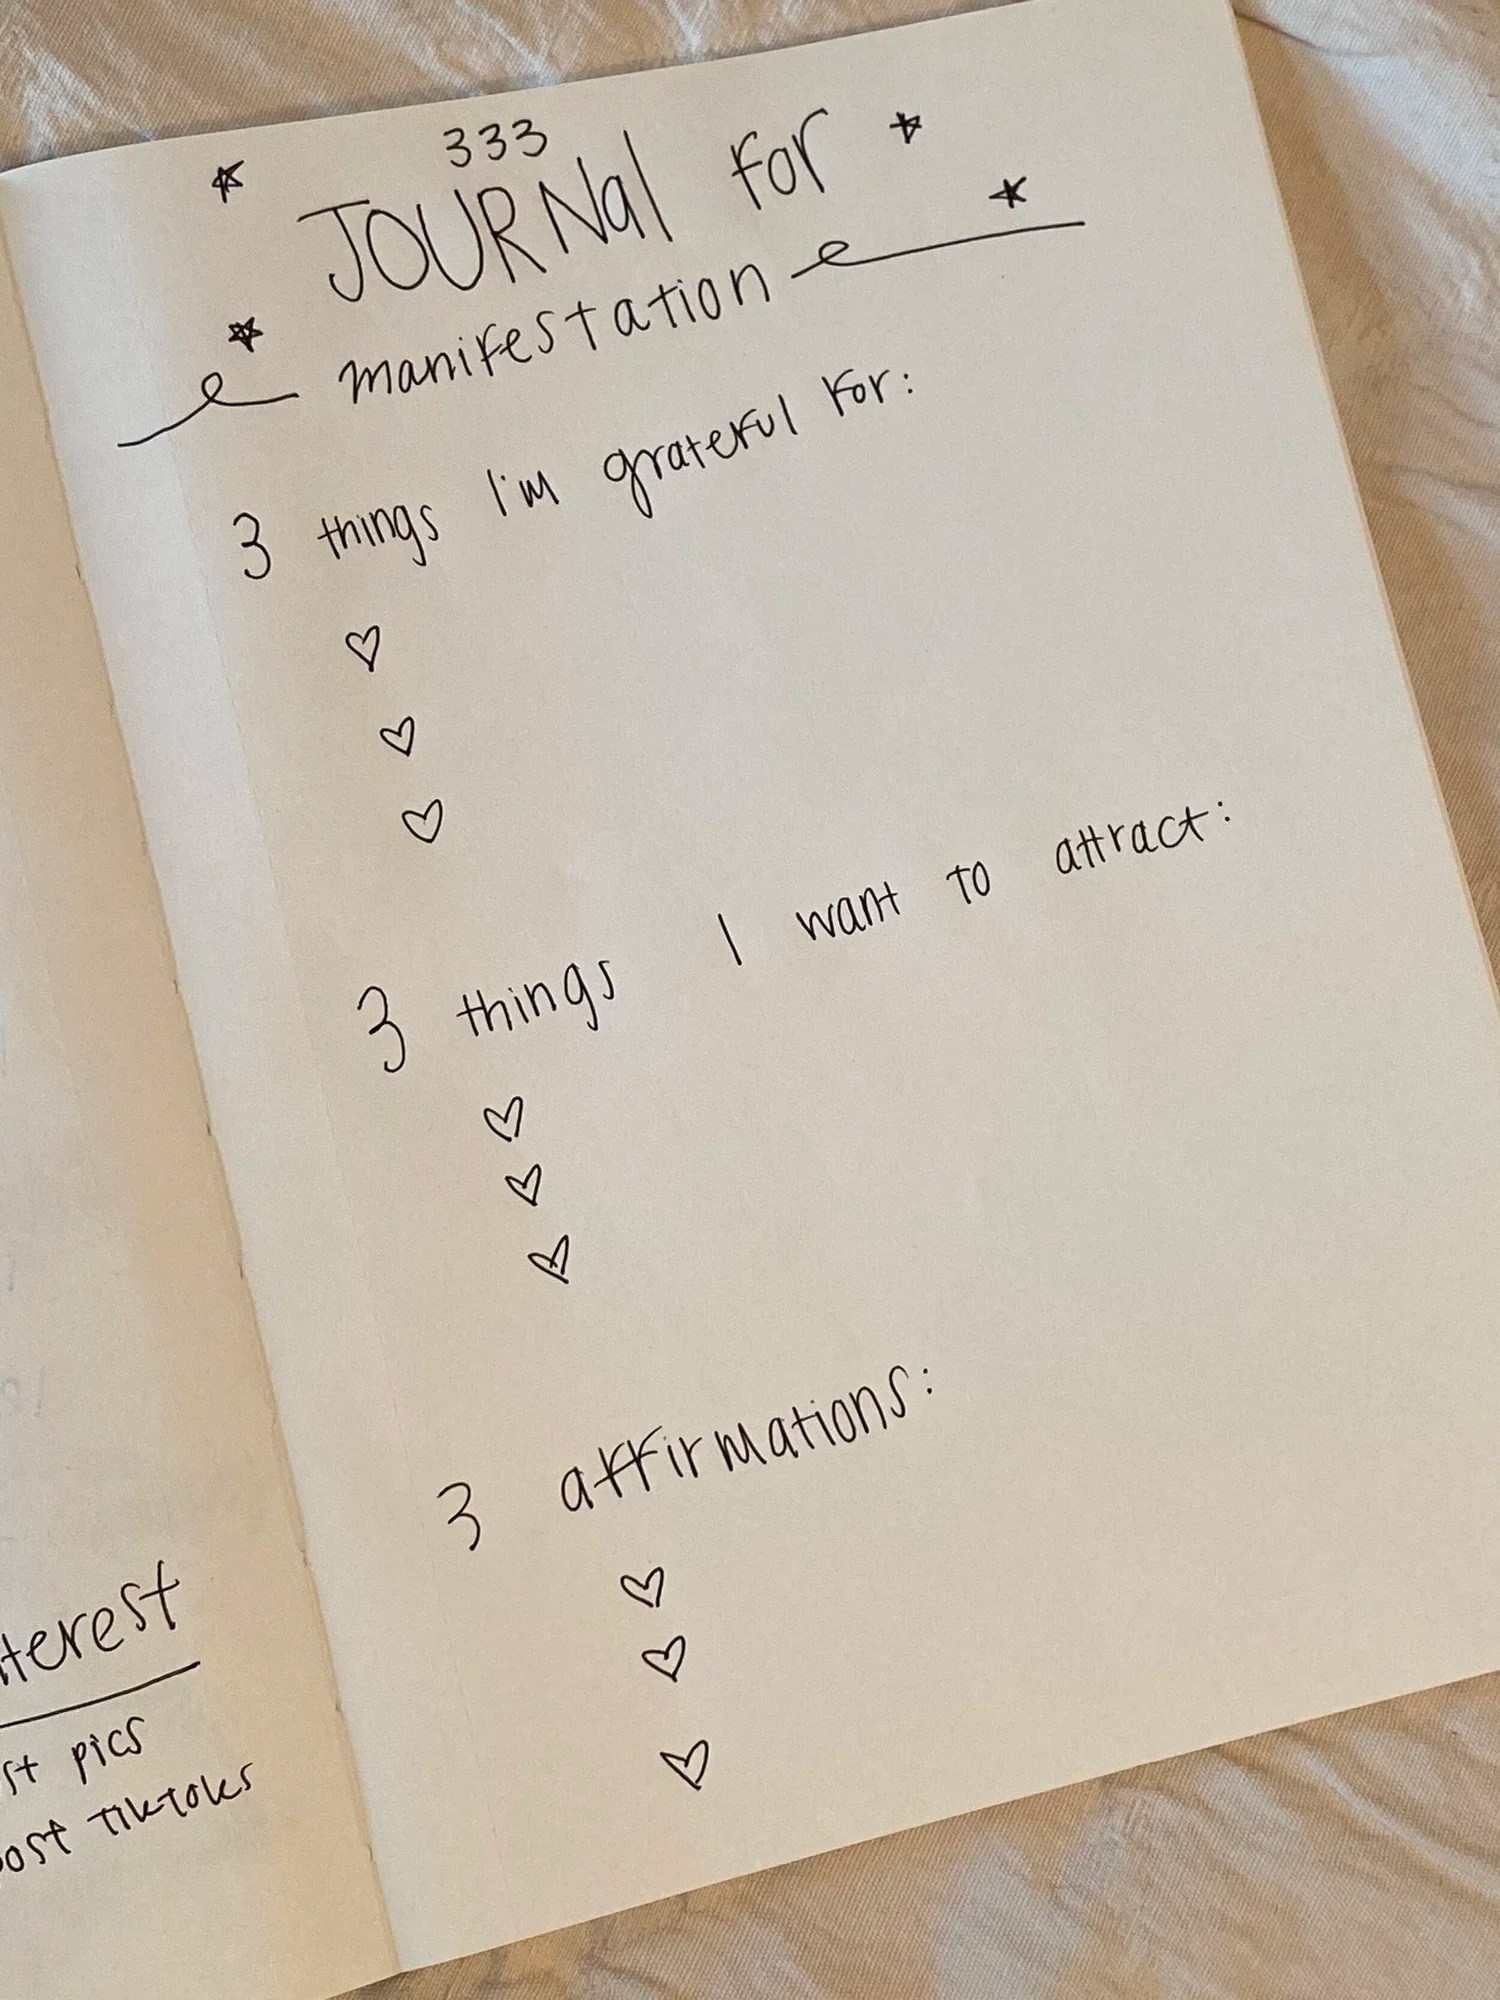 333
JOURNal for
manifestation
3 things I'm grateful for:
3 things I want to attract:
3 affirmations:
pics
tiktoks